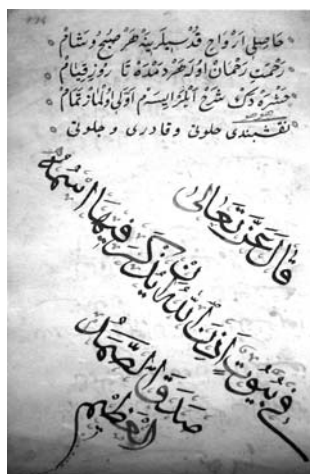 حاصلی ارواح قدسیلرینه هر صبح و شام
رحمت رحمان اوله هر دمده تا روز قیام
حشره دك شرح ایلرایسم اولی اولماز تمام
نقشبندی خلوتی و قادری و جلوتی
قَالَ عَزَّ وَتَعَالَى
فِي بُيُوتٍ أَذِنَ اللَّهُ أَنْ يُذْكَرَ فِيهَا اسْمُهُ
صَدَقَ الصَّمَدُ
الْعَظِيمُ